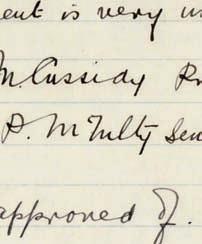 ent is very us
M. Cussidy Pr
P. McNulty Sen
approved of.